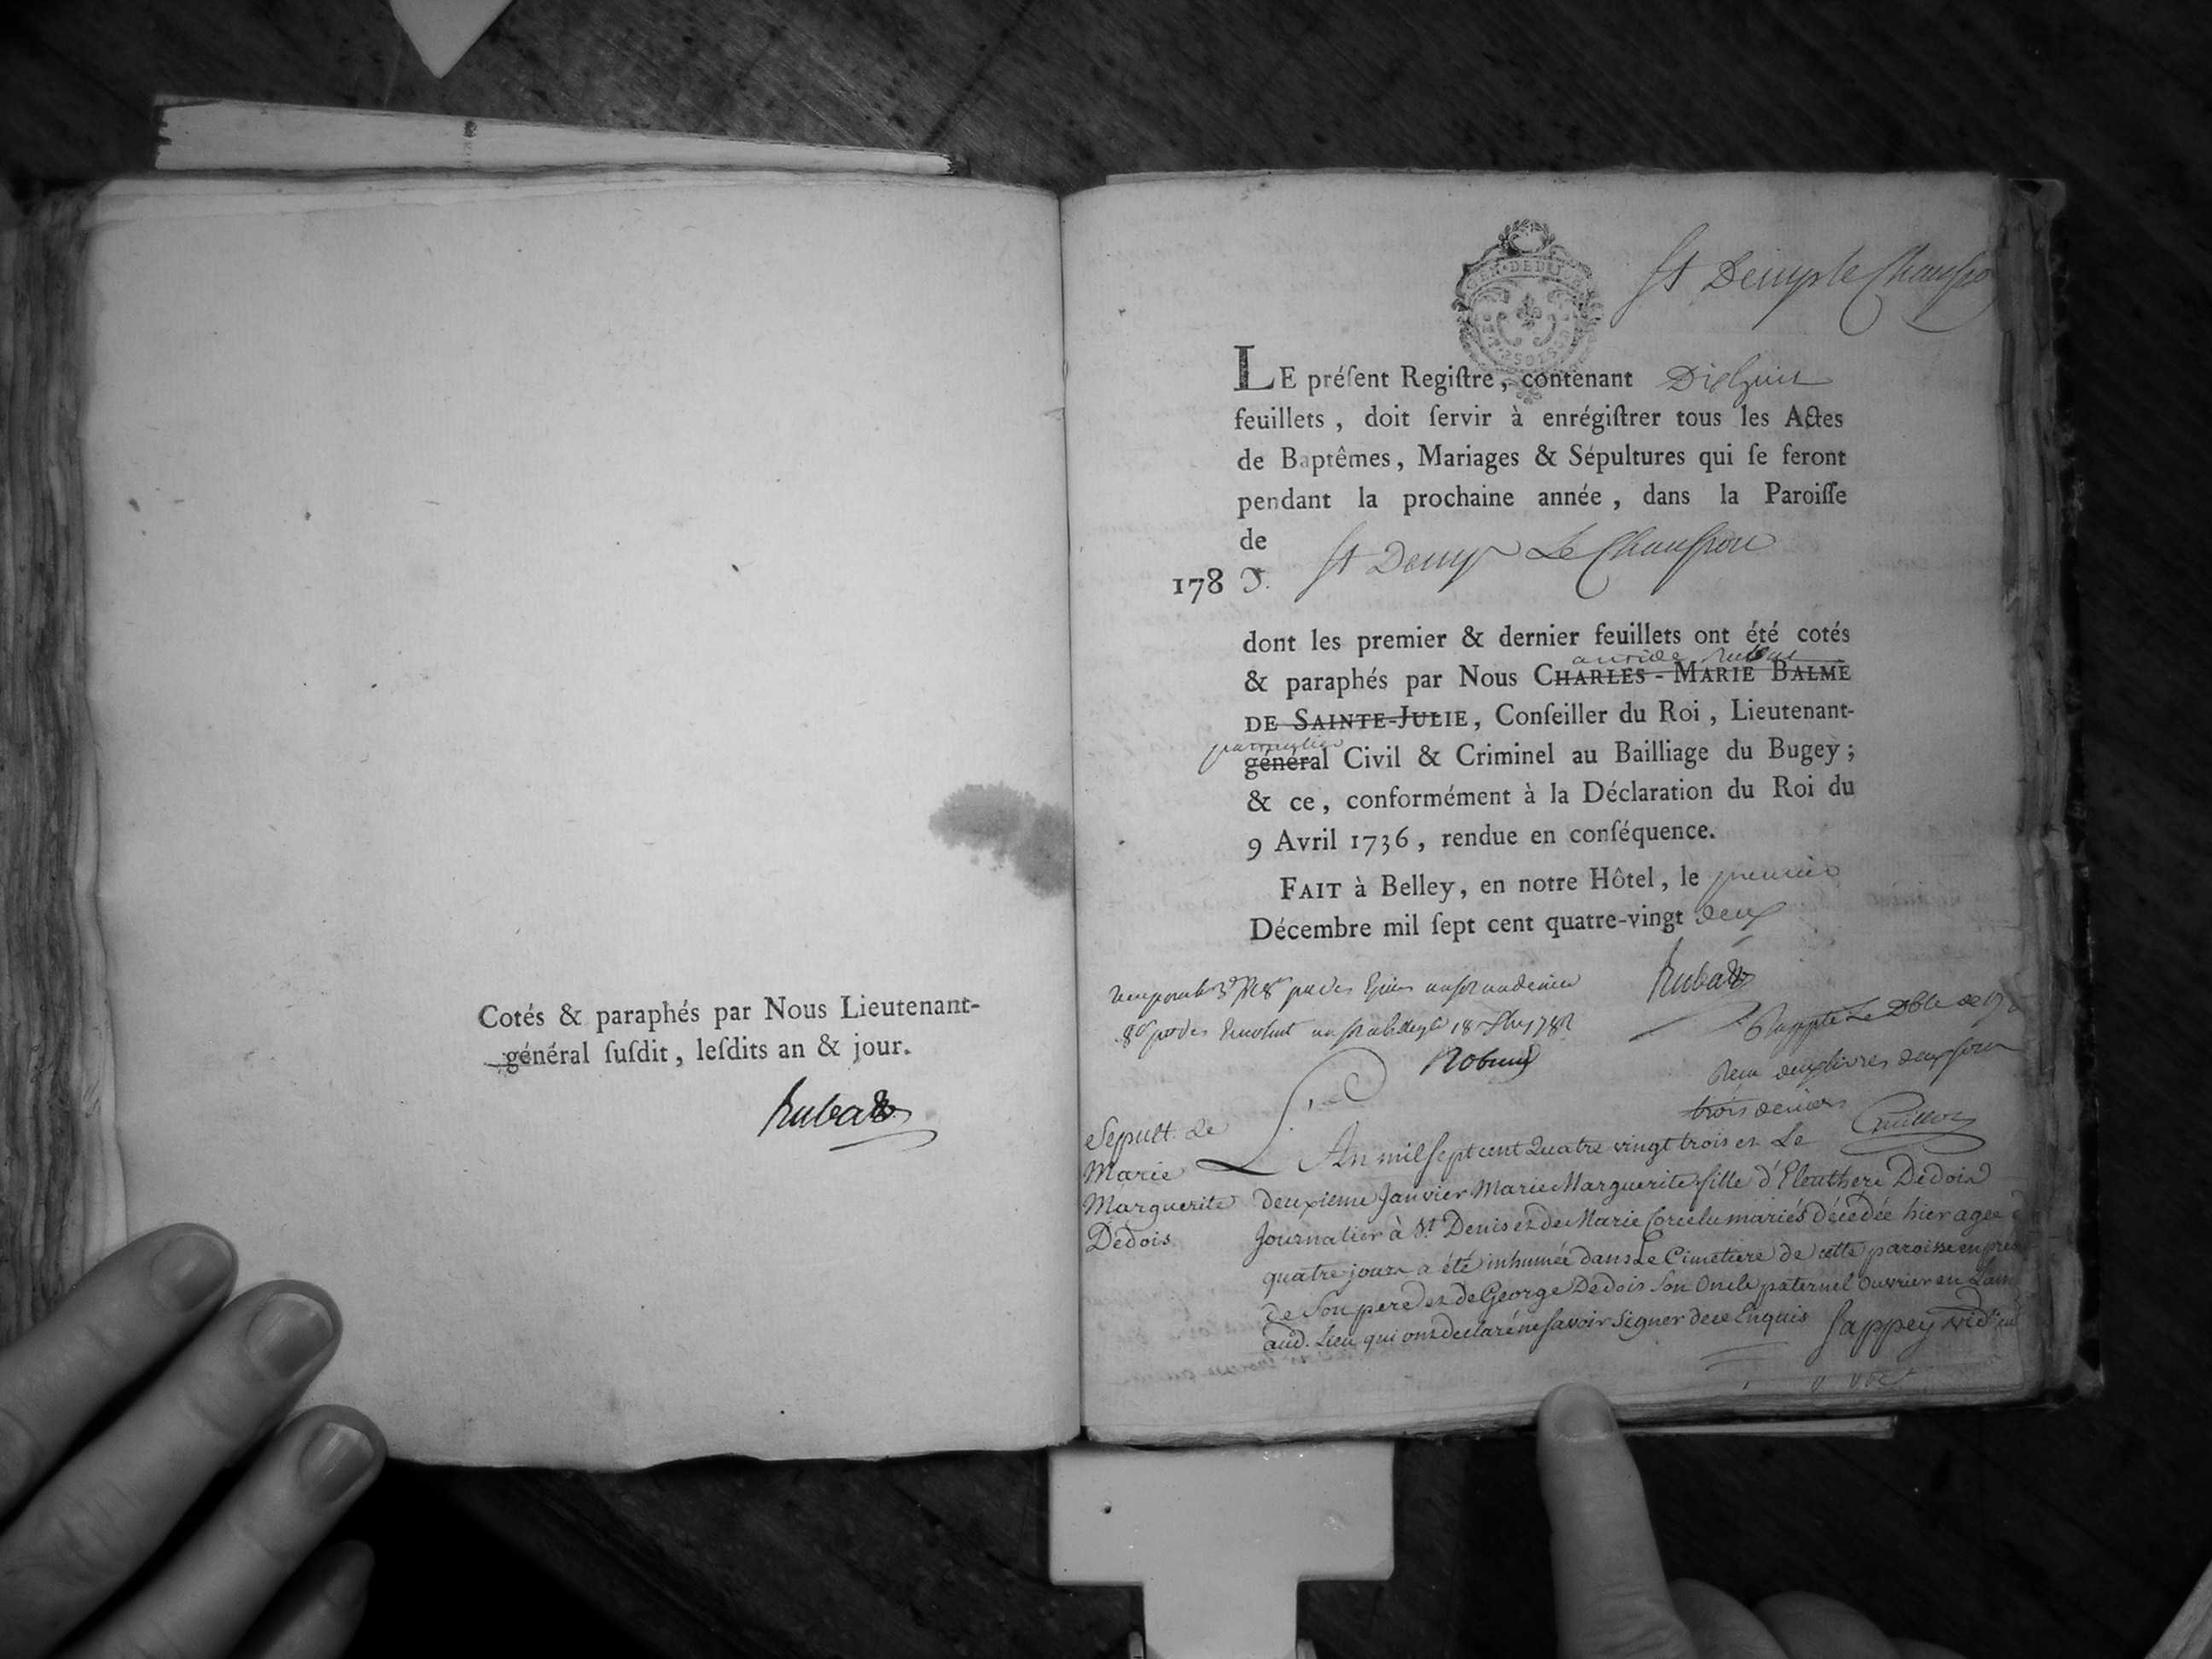 Cotés & paraphés par Nous Lieutenant-
général ſuſdit, leſdits an & jour.
St Denys le Chausson
LE préſent Regiſtre, contenant Dixhuit
feuillets, doit ſervir à enrégiſtrer tous les Actes
de Baptêmes, Mariages & Sépultures qui ſe feront
pendant la prochaine année, dans la Paroiſſe
de St Denys Le Chausson
178 3.
dont les premier & dernier feuillets ont été cotés
& paraphés par Nous CHARLES-MARIE BALME
DE SAINTE-JULIE, Conſeiller du Roi, Lieutenant-
particulier
général Civil & Criminel au Bailliage du Bugey;
& ce, conformément à la Déclaration du Roi du
9 Avril 1736, rendue en conſéquence.
FAIT à Belley, en notre Hôtel, le premier
Décembre mil ſept cent quatre-vingt deux
Reçu deux livres deux sous
trois deniers
Sepult. de
Marie
Marguerite
Dedois
L'An mil sept cent Quatre vingt trois et Le
deuxieme Janvier Marie Marguerite fille d'Eleuthere Dedois
Journalier à St. Denis et de Marie mariés décédée hier agée
quatre jours a été inhumée dans Le Cimetiere de cette paroisse en
de Son pere et de George Dedois Son Oncle paternel Ouvrier en
aud. Lieu qui ont declaré ne savoir signer de ce Enquis Sappey